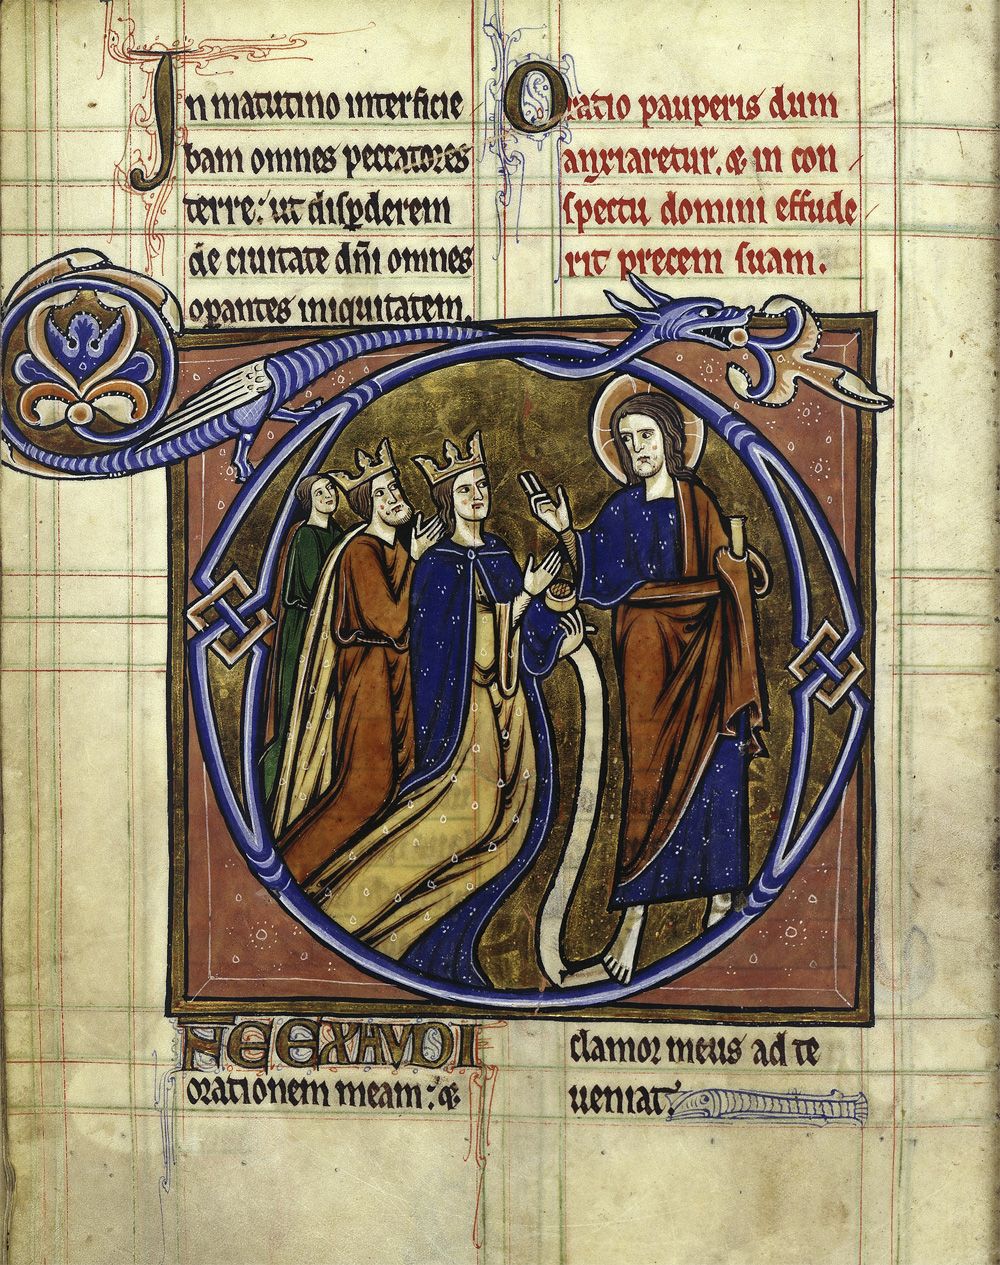 In matutino interficie
bam omnes peccatores
terre: ut disꝑderem
de ciuitate dn̄i omnes
oꝑantes iniquitatem.
Oratio pauperis dum
anxiaretur. & in con
spectu domini effude
rit precem suam.
DNE EXAVDI
orationem meam: &
clamor meus ad te
ueniat.